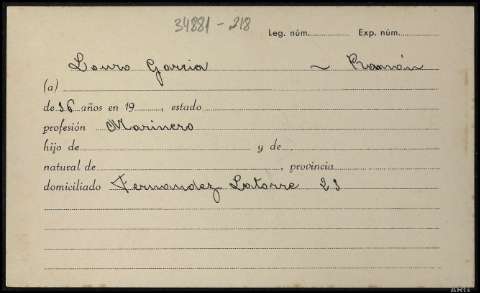 34881-218
Leg. núm. Exp. núm.
Louro Garcia ~ Ramón
(a)
de 36 años en 19, estado
profesión Marinero
hijo de y de
natural de, provincia
domiciliado Fernandez Latorre 23